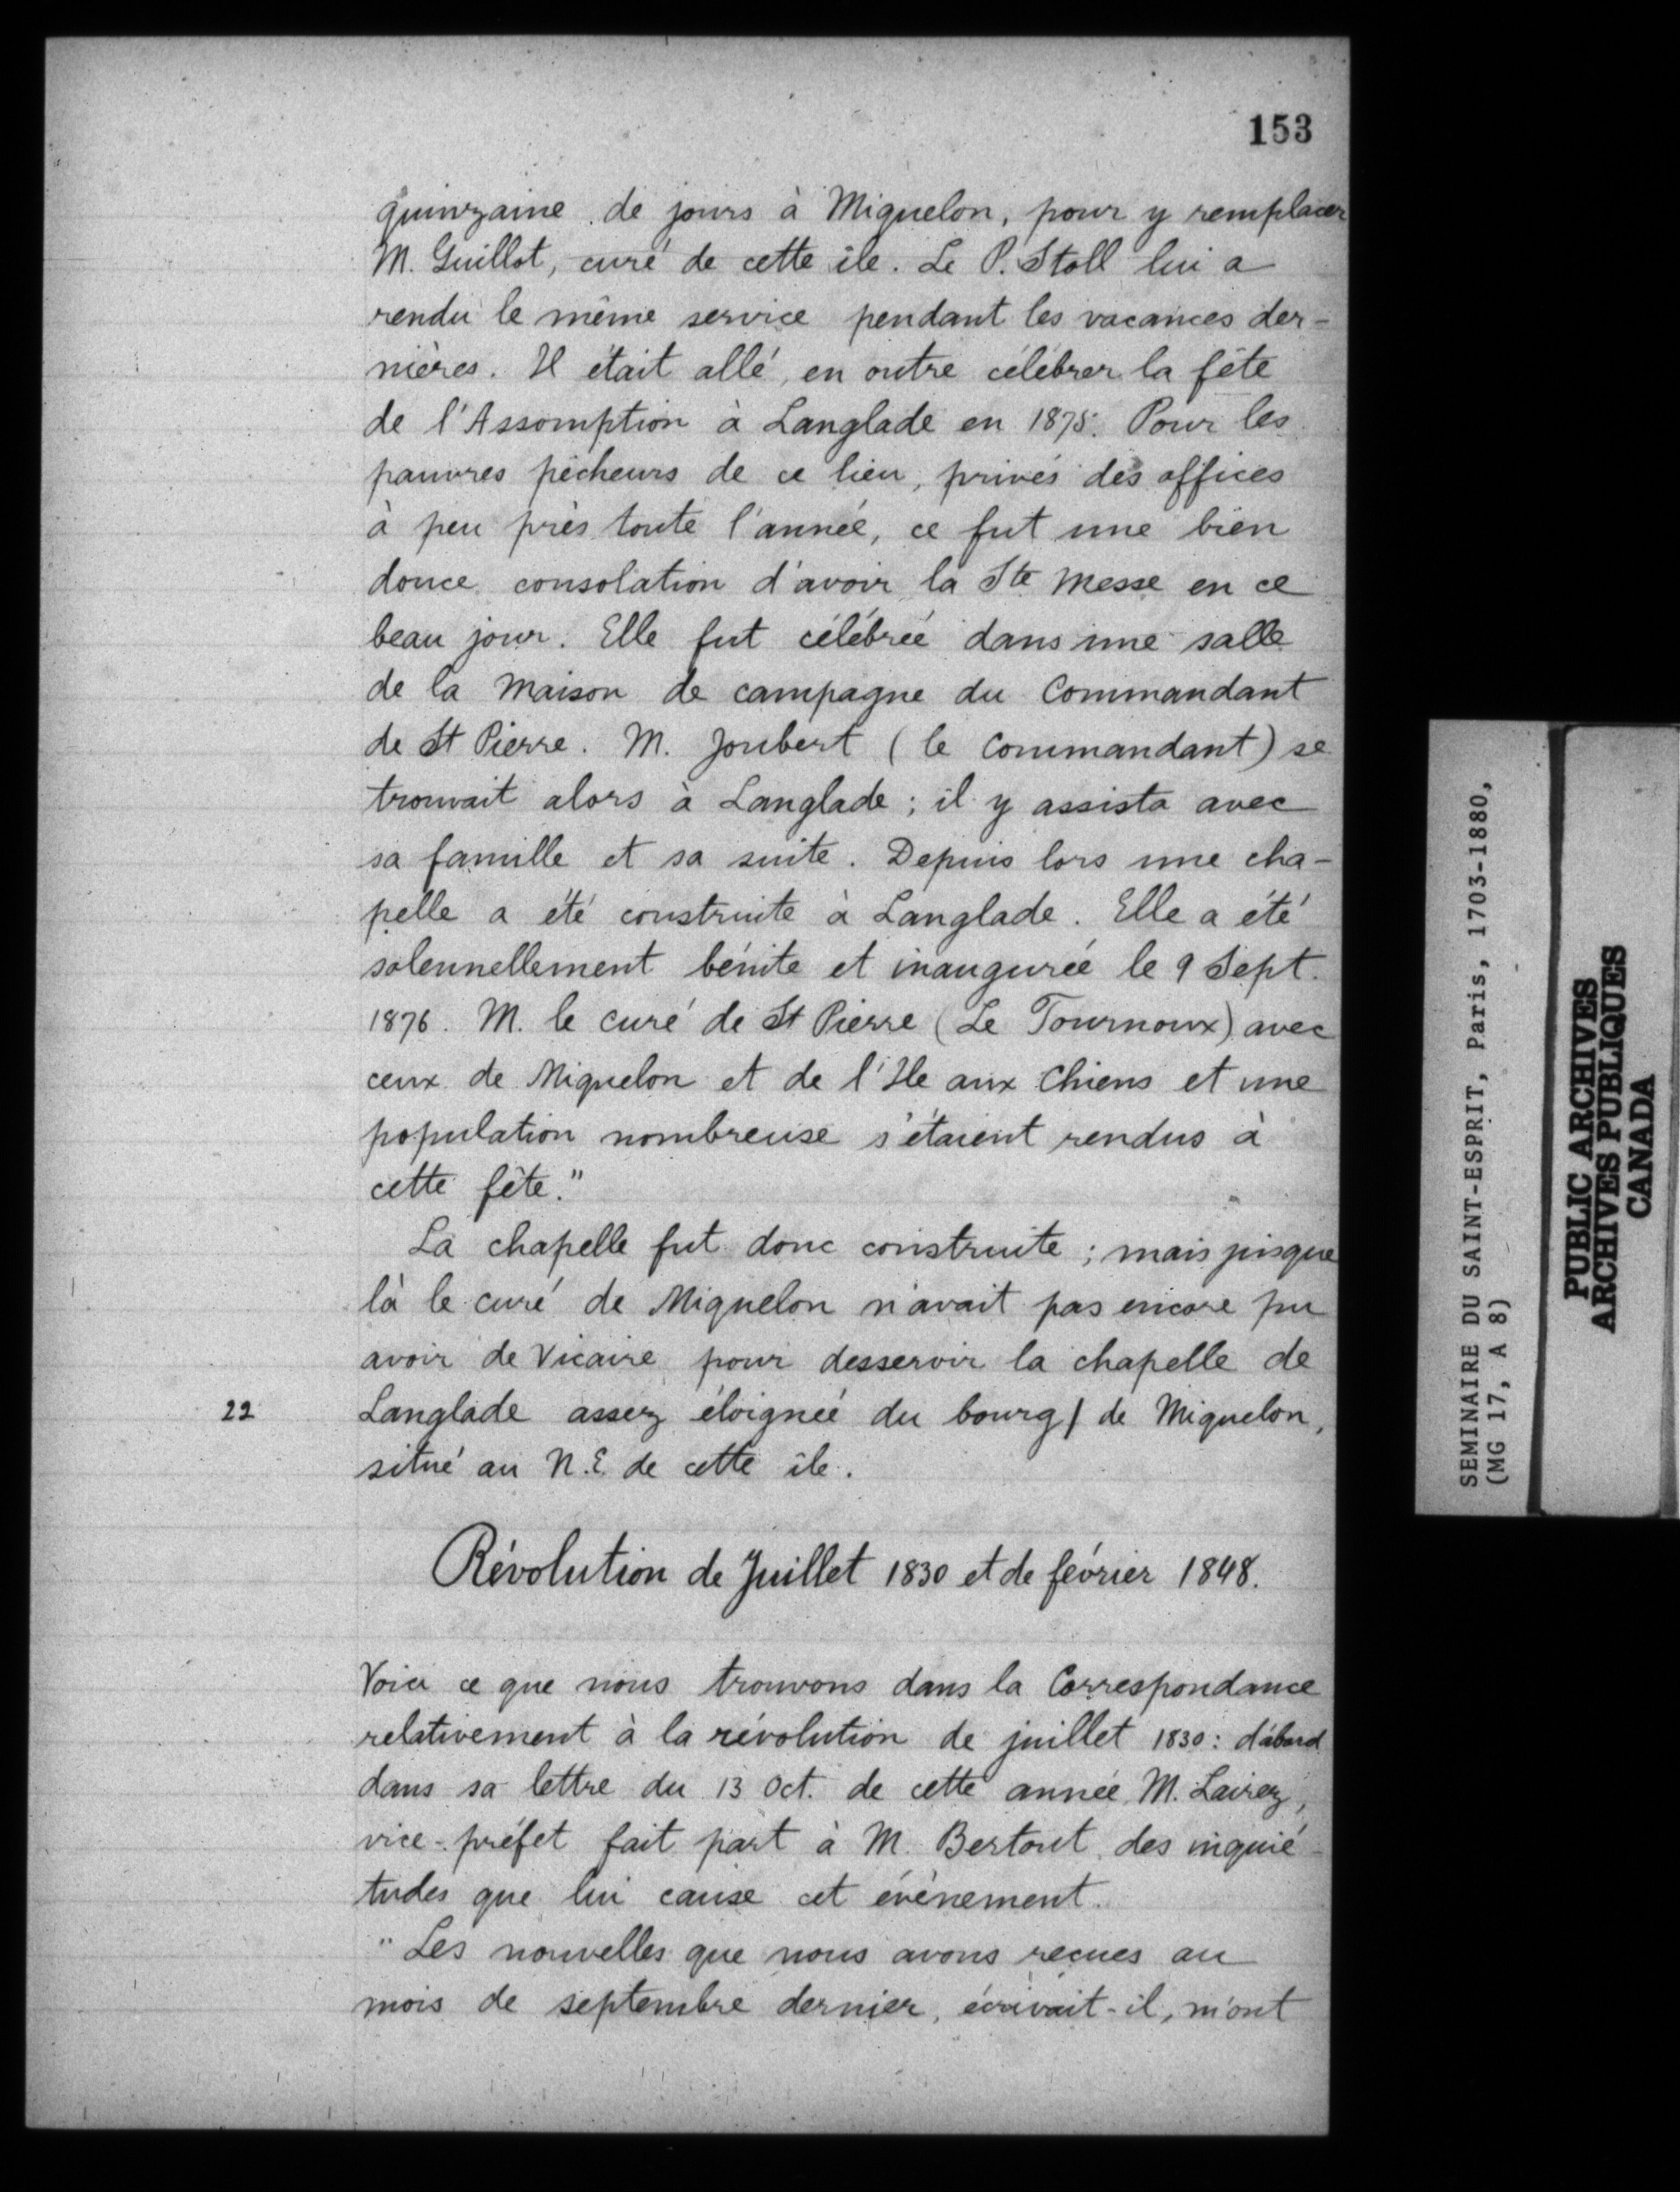 153
quinzaine de jours à Miquelon, pour y remplacer
M. Guillot, curé de cette île. Le P. Stoll lui a
rendu le même service pendant les vacances der-
nières. Il était allé, en outre célébrer la fête
de l'Assomption à Langlade en 1875. Pour les
pauvres pêcheurs de ce lieu, privés des offices
à peu près toute l'année, ce fut une bien
douce consolation d'avoir la Ste Messe en ce
beau jour. Elle fut célébrée dans une salle
de la Maison de campagne du Commandant
de St Pierre. M. Joubert (le Commandant) se
trouvait alors à Langlade; il y assista avec
sa famille et sa suite. Depuis lors une cha-
pelle a été construite à Langlade. Elle a été
solennellement bénite et inaugurée le 9 Sept.
1876. M. le Curé de St Pierre (Le Tournoux) avec
ceux de Miquelon et de l'Ile aux Chiens et une
population nombreuse s'étaient rendus à
cette fête."
La chapelle fut donc construite; mais jusque
là le curé de Miquelon n'avait pas encore pu
avoir de Vicaire pour desservir la chapelle de
22 Langlade assez éloignée du bourg / de Miquelon,
situé au N.E. de cette île.
Révolution de Juillet 1830 et de février 1848.
Voici ce que nous trouvons dans la Correspondance
relativement à la révolution de juillet 1830: d'abord
dans sa lettre du 13 Oct. de cette année M. Lairez,
vice-préfet fait part à M. Bertout des inquié-
tudes que lui cause cet évènement.
"Les nouvelles que nous avons reçues au
mois de septembre dernier, écrivait-il, m'ont
SEMINAIRE DU SAINT-ESPRIT, Paris, 1703-1880,
(MG 17, A 8)
PUBLIC ARCHIVES
ARCHIVES PUBLIQUES
CANADA